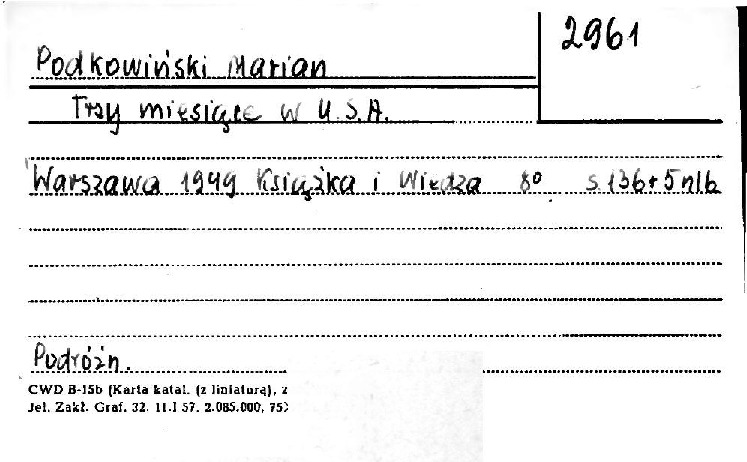 2961
Podkowiński Marian
Trzy miesiące w U.S.A.
Warszawa 1949 Książka i Wiedza 8° s. 136+5 nlb
Podróżn.
CWD B-15b (Karta katal. (z liniaturą), z
Jel. Zakł. Graf. 32. 11.I 57. 2.085.000, 75